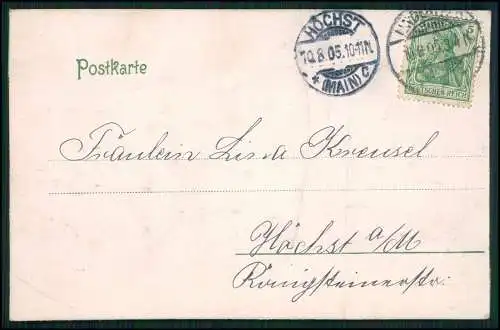 HÖCHST
10.8.05.10-11N.
* (MAIN) C
DEUTSCHES REICH
Postkarte
Fräulein Linda Kreusel
Höchst a/M
Königsteinerstr.